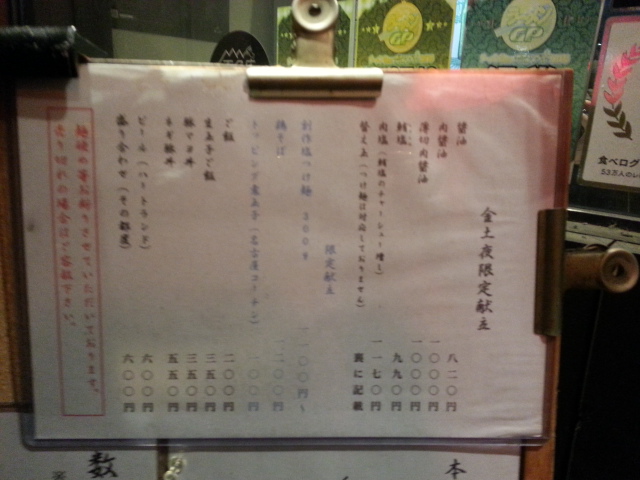 金土夜限定献立
醤油 八二〇円
肉醤油 一〇〇〇円
薄切肉醤油 一〇〇〇円
鯛塩 九九〇円
肉塩（鯛塩のチャーシュー増し） 一一七〇円
替え玉（つけ麺は対応しておりません） 裏に記載
限定献立
創作塩つけ麺 300g 一一〇〇円～
鶏そば 一二〇〇円
トッピング煮玉子（名古屋コーチン） 一〇〇円
ご飯 二〇〇円
生玉子ご飯 三五〇円
豚マヨ丼 三五〇円
ネギ豚丼 五五〇円
ビール（ハートランド） 六〇〇円
盛り合わせ（その都度） 六〇〇円
麺硬め等お断りさせていただいております。
売り切れの場合はご容赦下さい。
食べログ
数
本